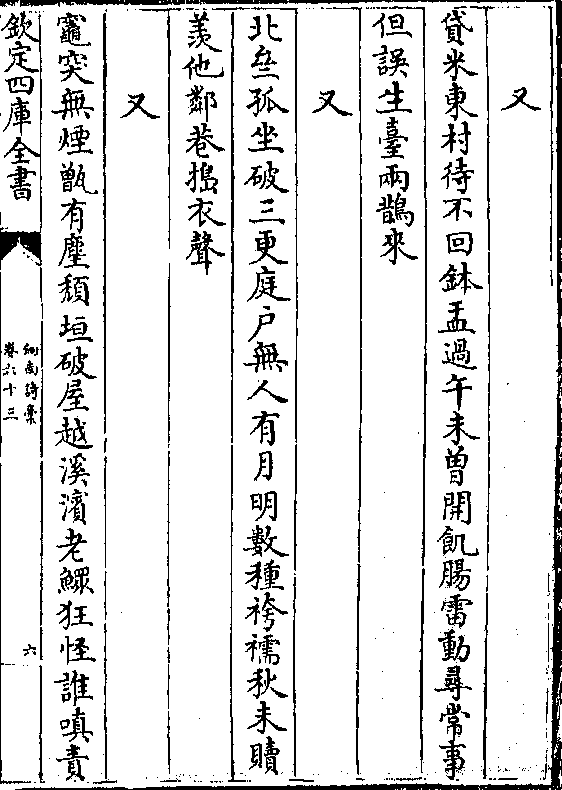 又
貸米東村待不回鉢盂過午未曽開飢腸雷動尋常事
但誤生臺兩鵲來
又
北垒孤坐破三更庭户無人有月明數種袴襦秋未贖
羨他鄰巷搗衣聲
又
竈突無煙甑有塵頽垣破屋越溪濱老鰥狂怪誰嗔責
欽定四庫全書
劒南詩稾
卷六十三
六